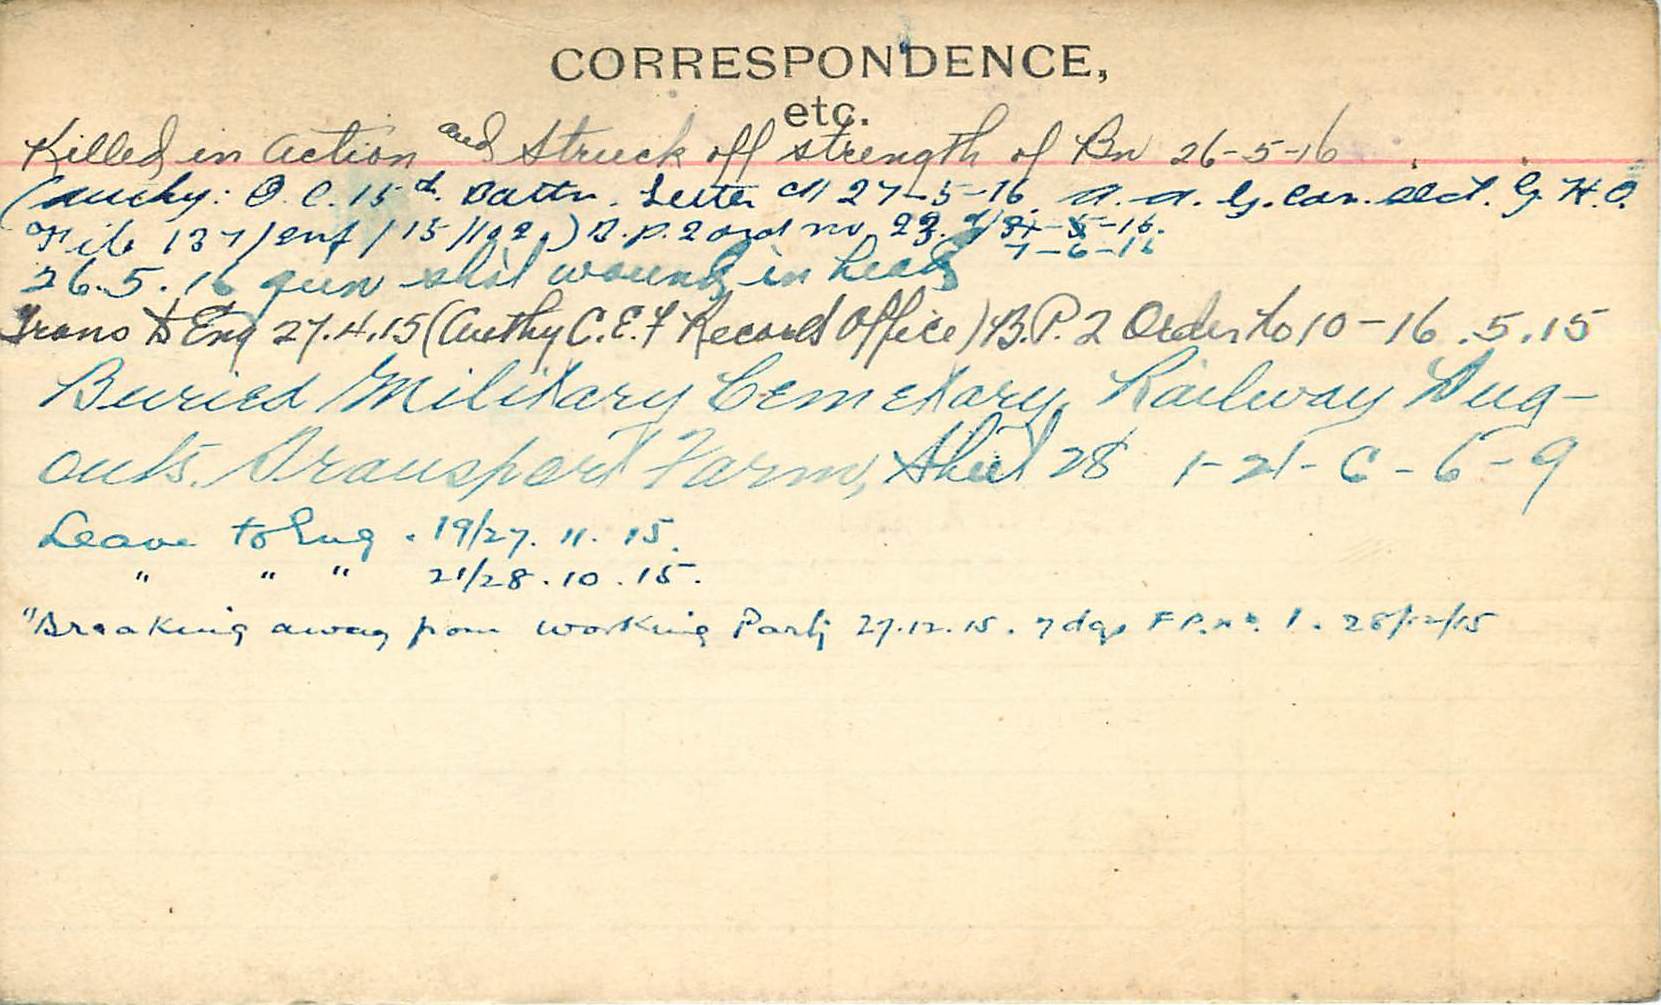 CORRESPONDENCE,
etc.
Killed in action and Struck off strength of Bn 26-5-16
(Authy: O.C. 15th Battn. Letter d/ 27-5-16. A.A.G. Can. Sect. G.H.Q.
File 137/Inf/15/102.) B.P.2 ord no 23. d/ 31-5-16.
7-6-16
26.5.16 gun shot wound in head
Trans to Eng 27.4.15 (Authy C.E.F Records Office) B.P.2 Order No 10-16.5.15
Buried Military Cemetary, Railway Dug-
outs. Transport Farm, Sheet 28 1-21-C-6-9
Leave to Eng. 19/27.11.15.
" " " 21/28.10.15.
"Breaking away from working Party 27.12.15. 7 dys F.P.No. 1. 28/12/15